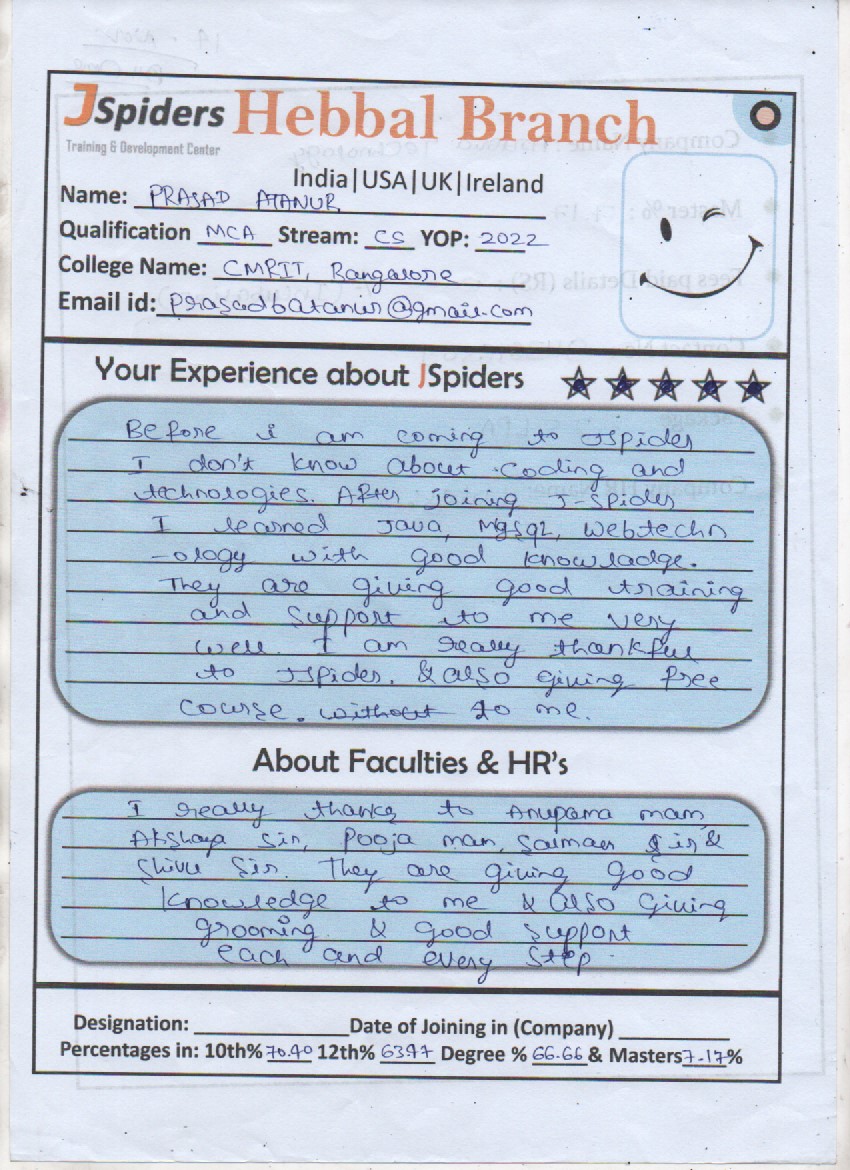 JSpiders Hebbal Branch
Training & Development Center
India|USA|UK|Ireland
Name: PRASAD ATANUR
Qualification MCA Stream: CS YOP: 2022
College Name: CMRIT, Bangalore
Email id: prasadbatanur@gmail.com
Your Experience about JSpiders
Before i am coming to JSpider
I don't know about coding and
technologies. After joining J-spider
I learned Java, MySQL, webtechn
-ology with good knowladge.
They are giving good training
and support to me very
well. I am really thankful
to JSpider. & also giving free
course. without to me.
About Faculties & HR's
I really thanks to Anupama mam,
Akshaya sir, Pooja mam, Salman sir &
Shivu Sir. They are giving good
knowledge to me & also giving
grooming & good support
each and every step.
Designation: Date of Joining in (Company)
Percentages in: 10th% 70.40 12th% Degree % 66.66 & Masters 7.17%
Company Name:
Master % :
Fees paid Details (RS) :
Contact No
Package
Company HR Name: